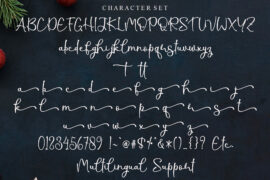 CHARACTER SET
ABCDEFGHIJKLMNOPQRSTUVWXYZ
abcdefghijklmnopqrstuvwxyz
T tt
a b c d e f g h i j
k l m n o p q r s t
u v w x y z
0123456789 Etc.
Multilingual Support